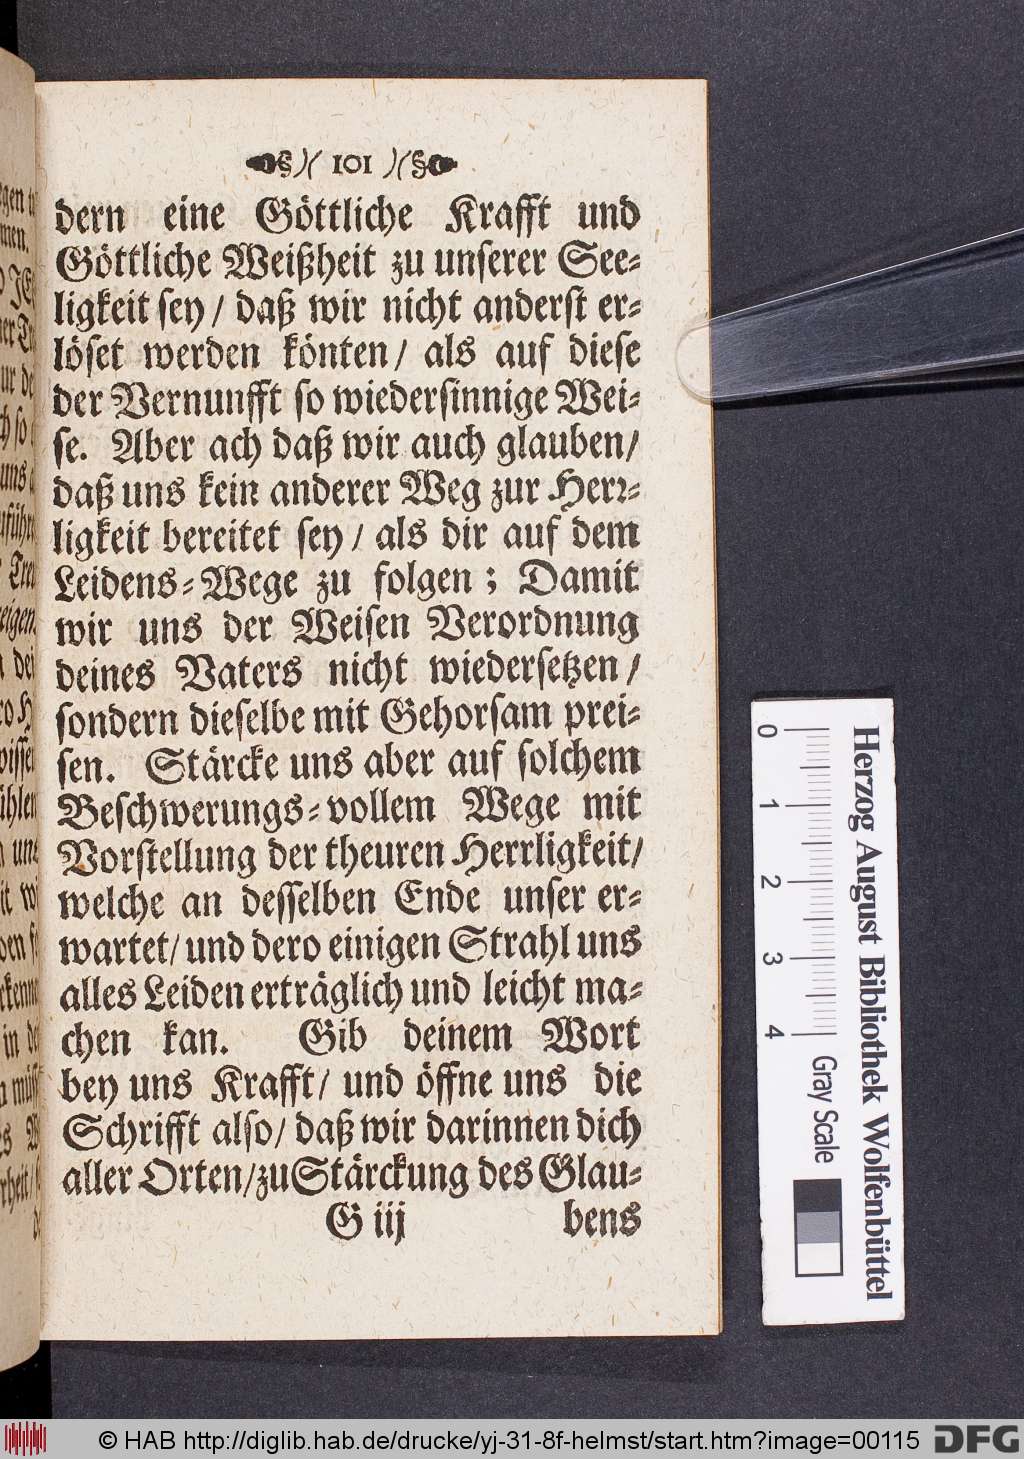 101
dern eine Göttliche Krafft und
Göttliche Weißheit zu unserer See-
ligkeit sey / daß wir nicht anderst er-
löset werden könten / als auf diese
der Vernunfft so wiedersinnige Wei-
se. Aber ach daß wir auch glauben /
daß uns kein anderer Weg zur Herr-
ligkeit bereitet sey / als dir auf dem
Leidens-Wege zu folgen ; Damit
wir uns der Weisen Verordnung
deines Vaters nicht wiedersetzen /
sondern dieselbe mit Gehorsam prei-
sen. Stärcke uns aber auf solchem
Beschwerungs-vollem Wege mit
Vorstellung der theuren Herrligkeit /
welche an desselben Ende unser er-
wartet / und dero einigen Strahl uns
alles Leiden erträglich und leicht ma-
chen kan. Gib deinem Wort
bey uns Krafft / und öffne uns die
Schrifft also / daß wir darinnen dich
aller Orten / zu Stärckung des Glau-
G iij bens
0 1 2 3 4 Gray Scale
Herzog August Bibliothek Wolfenbüttel
© HAB http://diglib.hab.de/drucke/yj-31-8f-helmst/start.htm?image=00115 DFG